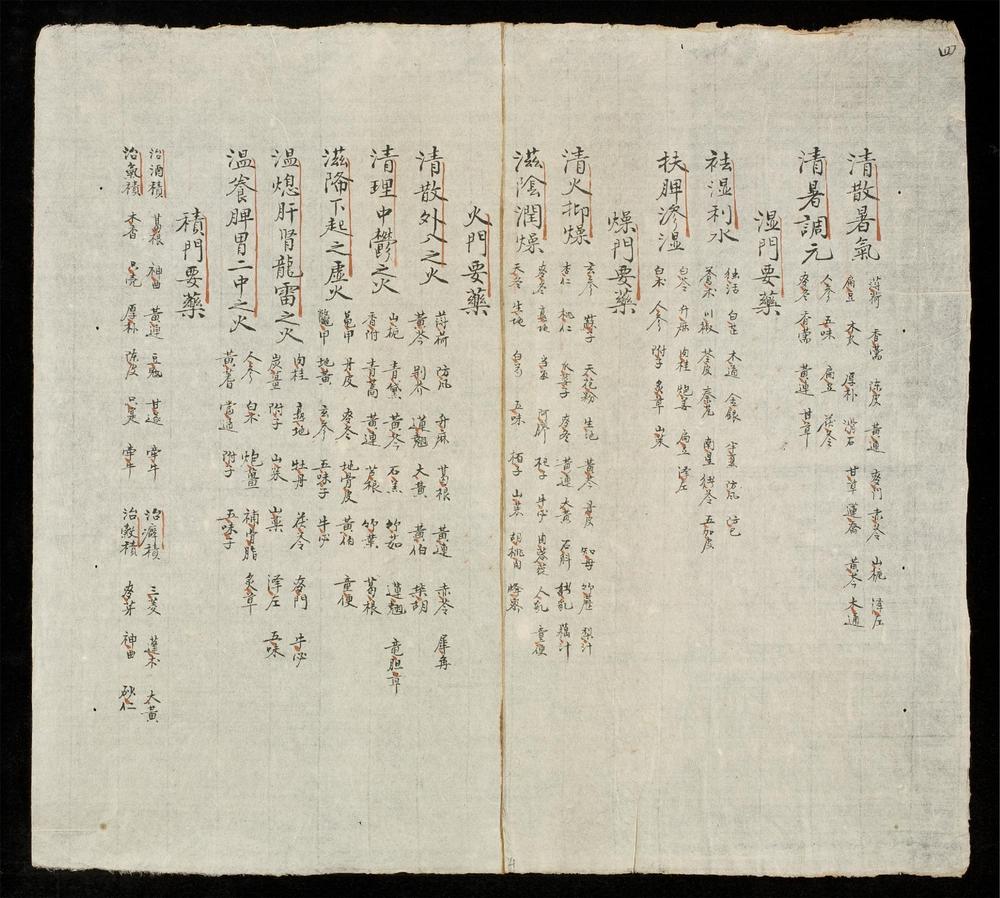 四
清散暑氣
薄荷 香薷 陳皮 黃連 麥門 赤苓 山梔 澤左
扁豆 木衣 厚朴 滑石 甘草 蓮肉 黃芩 木通
清暑調元
人參 五味 扁豆 茯苓
麥冬 香薷 黃連 甘草
湿門要藥
祛湿利水
独活 白芷 木通 金銀 防風 防己
蒼朮 川椒 苓皮 秦艽 南星 猪苓 五加皮
扶脾滲湿
白苓 升麻 肉桂 炮姜 扁豆 澤左
白朮 人參 附子 炙草 山藥
燥門要藥
清火抑燥
玄參 蘇子 天花粉 生地 黃芩 丹皮 知母 竹瀝 梨汁
杏仁 桃仁 瓜蔞子 麥冬 黃連 大黃 石斛 藕汁
滋陰潤燥
麥冬 熟地 當歸 阿膠 杞子 牛必 肉蓯蓉 人乳 童便
天冬 生地 白芍 五味 栢子 山茱 胡桃肉 蜂蜜
火門要藥
清散外入之火
薄荷 防風 升麻 葛根 黃連 赤苓 犀角
黃芩 荆芥 蓮翹 大黃 黃伯 柴胡
清理中鬱之火
山梔 青黛 黃芩 石羔 竹茹 蓮翹 竜胆草
香附 青蒿 黃連 竹葉 葛根
滋降下起之虛火
黽甲 丹皮 麥冬 地骨皮 黃伯 童便
鱉甲 地黃 玄參 五味子 牛必
温熄肝腎龍雷之火
肉桂 熟地 牡丹 茯苓 麥門 牛必
炭薑 附子 山茱 山藥 澤左 五味
温養脾胃二中之火
人參 白朮 炮薑 補骨脂 炙草
黃蓍 當歸 附子 五味子
積門要藥
治酒積 葛根 神曲 黃連 豆蔻 甘遂 牽牛 治癖積 三菱 蓬朮 大黃
治氣積 木香 只壳 厚朴 陳皮 只実 牽牛 治穀積 麥芽 神曲 砂仁
4